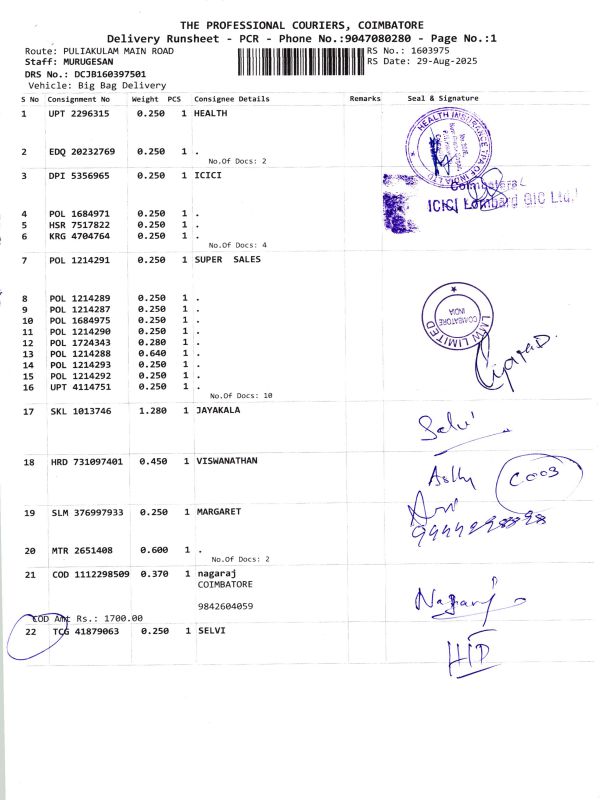 THE PROFESSIONAL COURIERS, COIMBATORE
Delivery Runsheet - PCR - Phone No.:9047080280 - Page No.:1
Route: PULIAKULAM MAIN ROAD
RS No.: 1603975
Staff: MURUGESAN
RS Date: 29-Aug-2025
DRS No.: DCJB160397501
Vehicle: Big Bag Delivery
S No Consignment No Weight PCS Consignee Details Remarks Seal & Signature
1 UPT 2296315 0.250 1 HEALTH
HEALTH INSURANCE TPA OF INDIA LTD
2 EDQ 20232769 0.250 1 .
No.Of Docs: 2
3 DPI 5356965 0.250 1 ICICI
Coimbatore
ICICI Lombard GIC Ltd.
4 POL 1684971 0.250 1 .
5 HSR 7517822 0.250 1 .
6 KRG 4704764 0.250 1 .
No.Of Docs: 4
7 POL 1214291 0.250 1 SUPER SALES
8 POL 1214289 0.250 1 .
9 POL 1214287 0.250 1 .
10 POL 1684975 0.250 1 .
11 POL 1214290 0.250 1 .
12 POL 1724343 0.280 1 .
13 POL 1214288 0.640 1 .
14 POL 1214293 0.250 1 .
15 POL 1214292 0.250 1 .
16 UPT 4114751 0.250 1 .
LMW LIMITED
COIMBATORE
INDIA
No.Of Docs: 10
17 SKL 1013746 1.280 1 JAYAKALA
Selvi
18 HRD 731097401 0.450 1 VISWANATHAN
C003
19 SLM 376997933 0.250 1 MARGARET
20 MTR 2651408 0.600 1 .
No.Of Docs: 2
21 COD 1112298509 0.370 1 nagaraj
COIMBATORE
9842604059
Nagaraj
COD Amt Rs.: 1700.00
22 TCG 41879063 0.250 1 SELVI